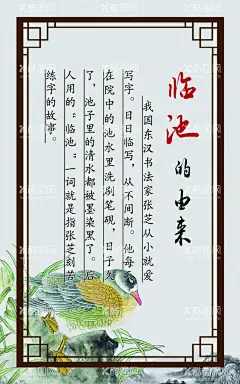 临池的由来
我国东汉书法家张芝从小就爱
写字。日日临写，从不间断。他每
在院中的池水里洗刷笔砚，日子久
了，池子里的清水都被墨染黑了。后
人用的“临池”一词就是指张芝刻苦
练字的故事。